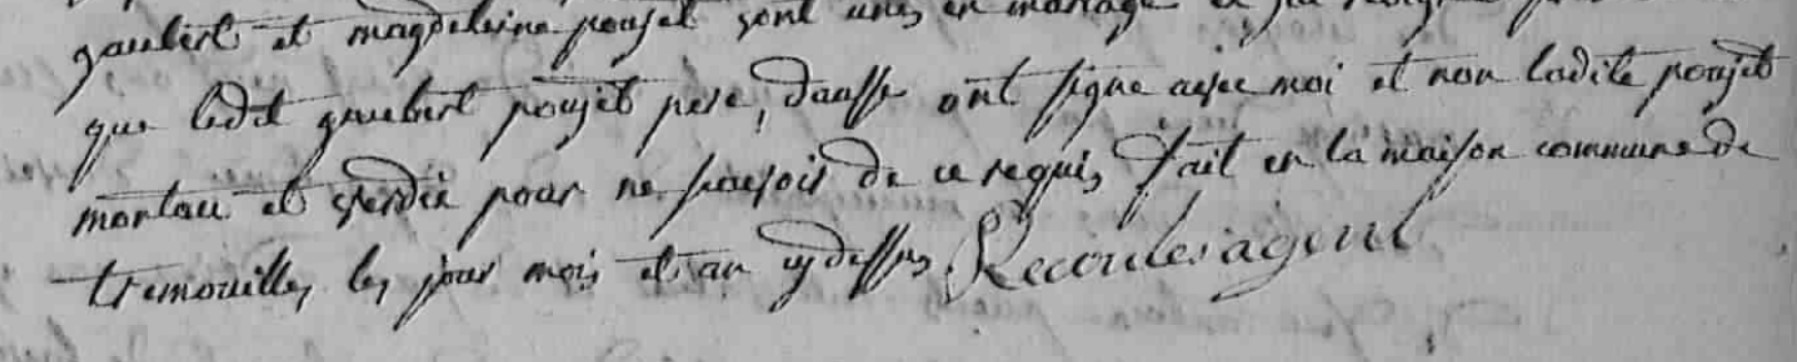 gaubert et magdeleine poujet sont unis en mariage et j'ai
que ledit gaubert poujet pere, dausse ont signe avec moi et non ladite poujet
montau et pour ne savoir de ce requis fait en la maison commune de
tremouilles les jour mois et an cydessus Recoules agent